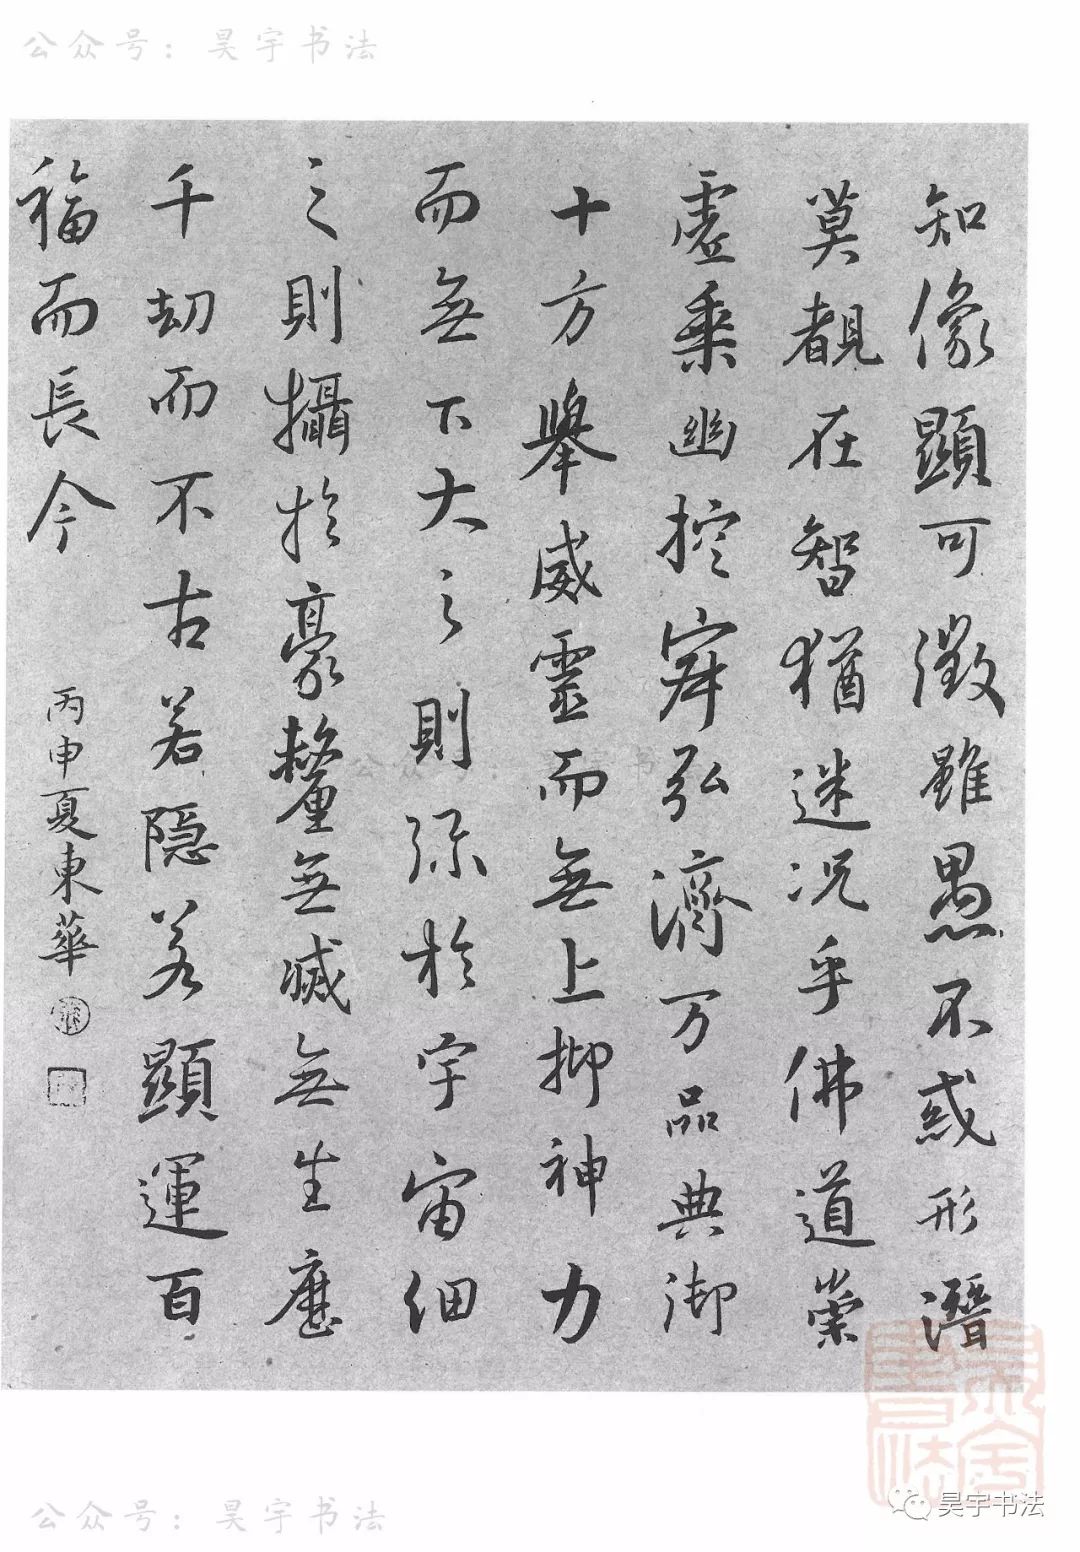 公众号：昊宇书法
知像顯可徵雖愚不惑形潛
莫覩在智猶迷况乎佛道崇
虛乗幽控寂弘濟万品典御
十方舉威靈而無上抑神力
而無下大之則弥於宇宙细
之則攝於豪釐無滅無生歷
千劫而不古若隐若顯運百
福而長今
丙申夏東華
公众号：昊宇书法
昊宇书法